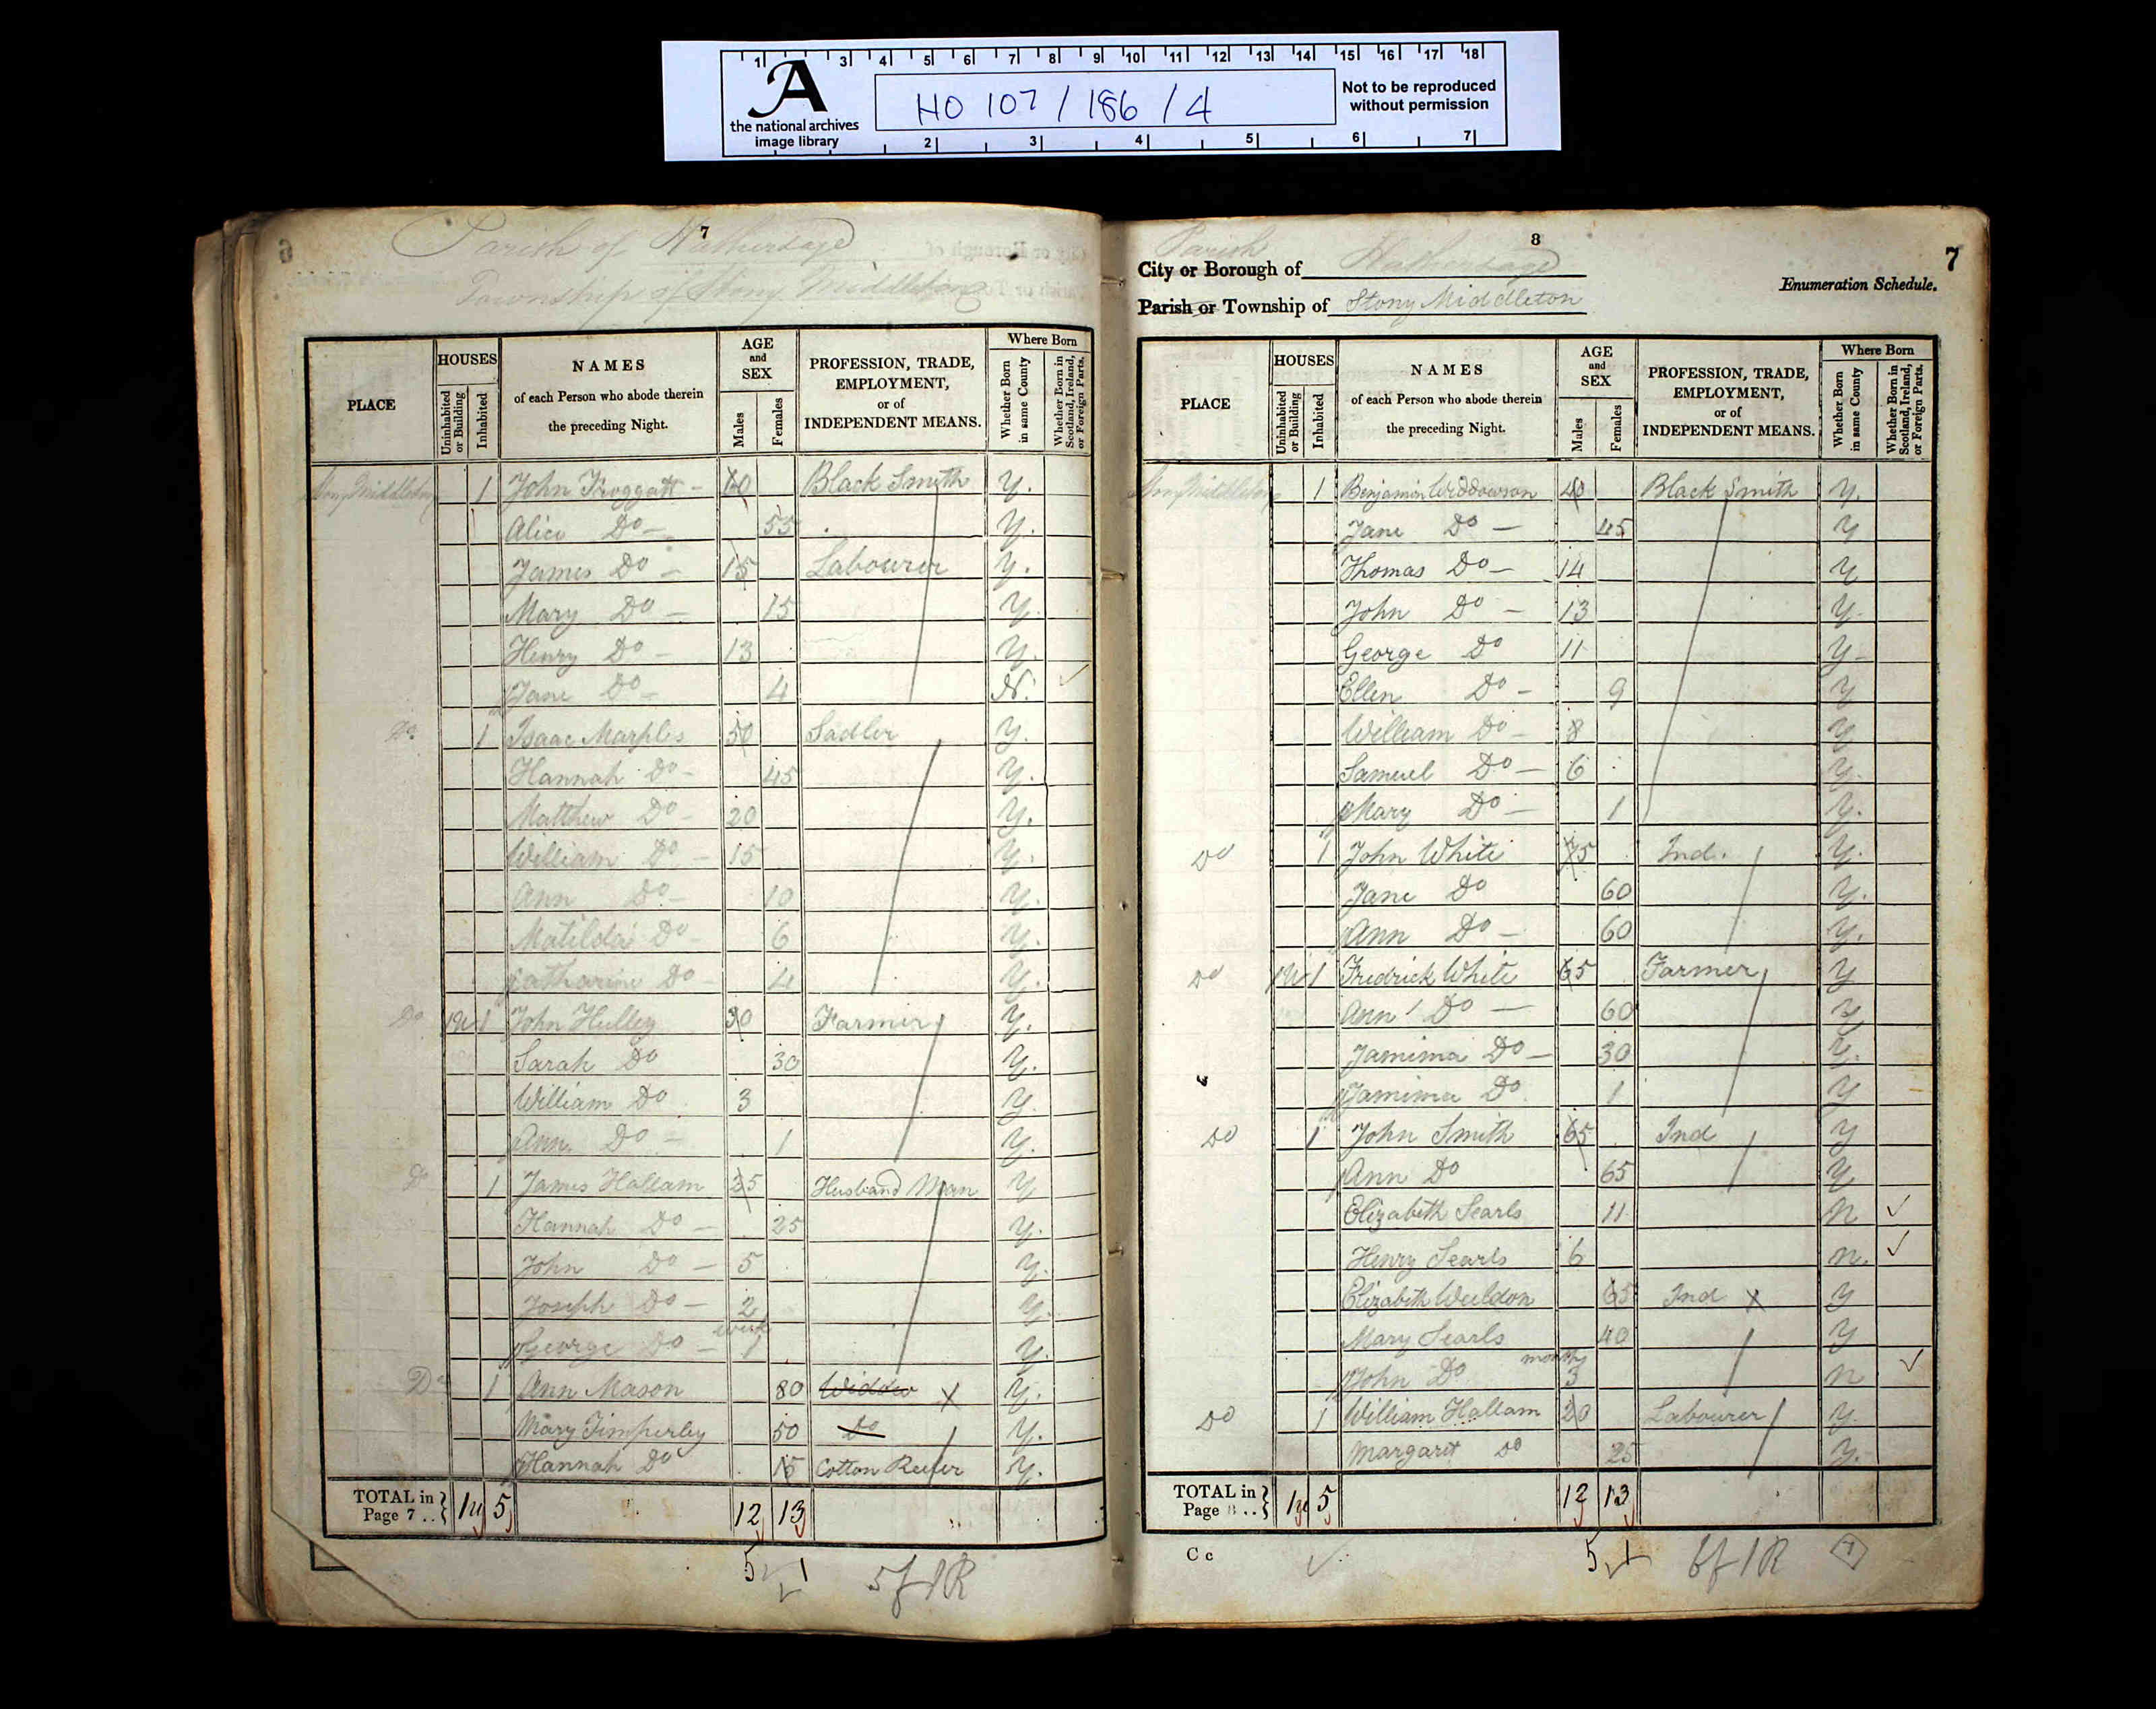 1 3 4 5 6 7 8 9 10 11 12 13 14 15 16 17 18
A
the national archives
image library
HO 107 / 186 / 4
Not to be reproduced
without permission
2 3 4 5 6 7
7
Parish of Hathersage
Township of Stony Middleton
PLACE
HOUSES
Uninhabited or Building
Inhabited
NAMES
of each Person who abode therein
the preceding Night.
AGE
and
SEX
Males
Females
PROFESSION, TRADE,
EMPLOYMENT,
or of
INDEPENDENT MEANS.
Where Born
Whether Born in same County
Whether Born in Scotland, Ireland, or Foreign Parts.
Stony Middleton 1 John Froggatt - Black Smith Y.
Alice Do - 55 Y.
James Do - 15 Labourer Y.
Mary Do - 15 Y.
Henry Do - 13 Y.
Jane Do - 4 N.
Do 1 Isaac Marples 50 Sadler Y.
Hannah Do - 45 Y.
Matthew Do - 20 Y.
William Do - 15 Y.
Ann Do - 10 Y.
Matilda Do - 6 Y.
Catharine Do - 4 Y.
Do 1U 1 John Hulley 30 Farmer Y.
Sarah Do 30 Y.
William Do 3 Y.
Ann Do - 1 Y.
Do 1 James Hallam 25 Husband Man Y
Hannah Do - 25 Y.
John Do - 5 Y.
Joseph Do - 2 Y.
George Do - week 1 Y.
Do 1 Ann Mason 80 Widdow Y.
Mary Timperley 50 Do Y.
Hannah Do 15 Cotton Reeler Y.
TOTAL in
Page 7 .. } 1u 5 12 13
5 1 5f 1R
8
7
Parish
City or Borough of Hathersage
Enumeration Schedule.
Parish or Township of Stony Middleton
PLACE
HOUSES
Uninhabited or Building
Inhabited
NAMES
of each Person who abode therein
the preceding Night.
AGE
and
SEX
Males
Females
PROFESSION, TRADE,
EMPLOYMENT,
or of
INDEPENDENT MEANS.
Where Born
Whether Born in same County
Whether Born in Scotland, Ireland, or Foreign Parts.
Stony Middleton 1 Benjamin Widdowson 40 Black Smith Y.
Jane Do - 45 Y
Thomas Do - 14 Y
John Do - 13 Y
George Do 11 Y
Ellen Do - 9 Y
William Do - 8 Y
Samuel Do - 6 Y.
Mary Do - 1 Y.
Do 1 John White Ind. Y.
Jane Do 60 Y.
Ann Do - 60 Y.
Do 1U 1 Fredrick White 65 Farmer Y
Ann Do - 60 Y
Jamima Do - 30 Y.
Jamima Do 1 Y
Do 1 John Smith 65 Ind Y
Ann Do 65 Y
Elizabeth Searls 11 N
Henry Searls 6 N.
Elizabeth Weildon 65 Ind Y
Mary Searls 40 Y
John Do months 3 N
Do 1 William Hallam 20 Labourer Y
Margaret Do 25 Y.
TOTAL in
Page 8 .. } 1u 5 12 13
C c 5 1 6f 1R